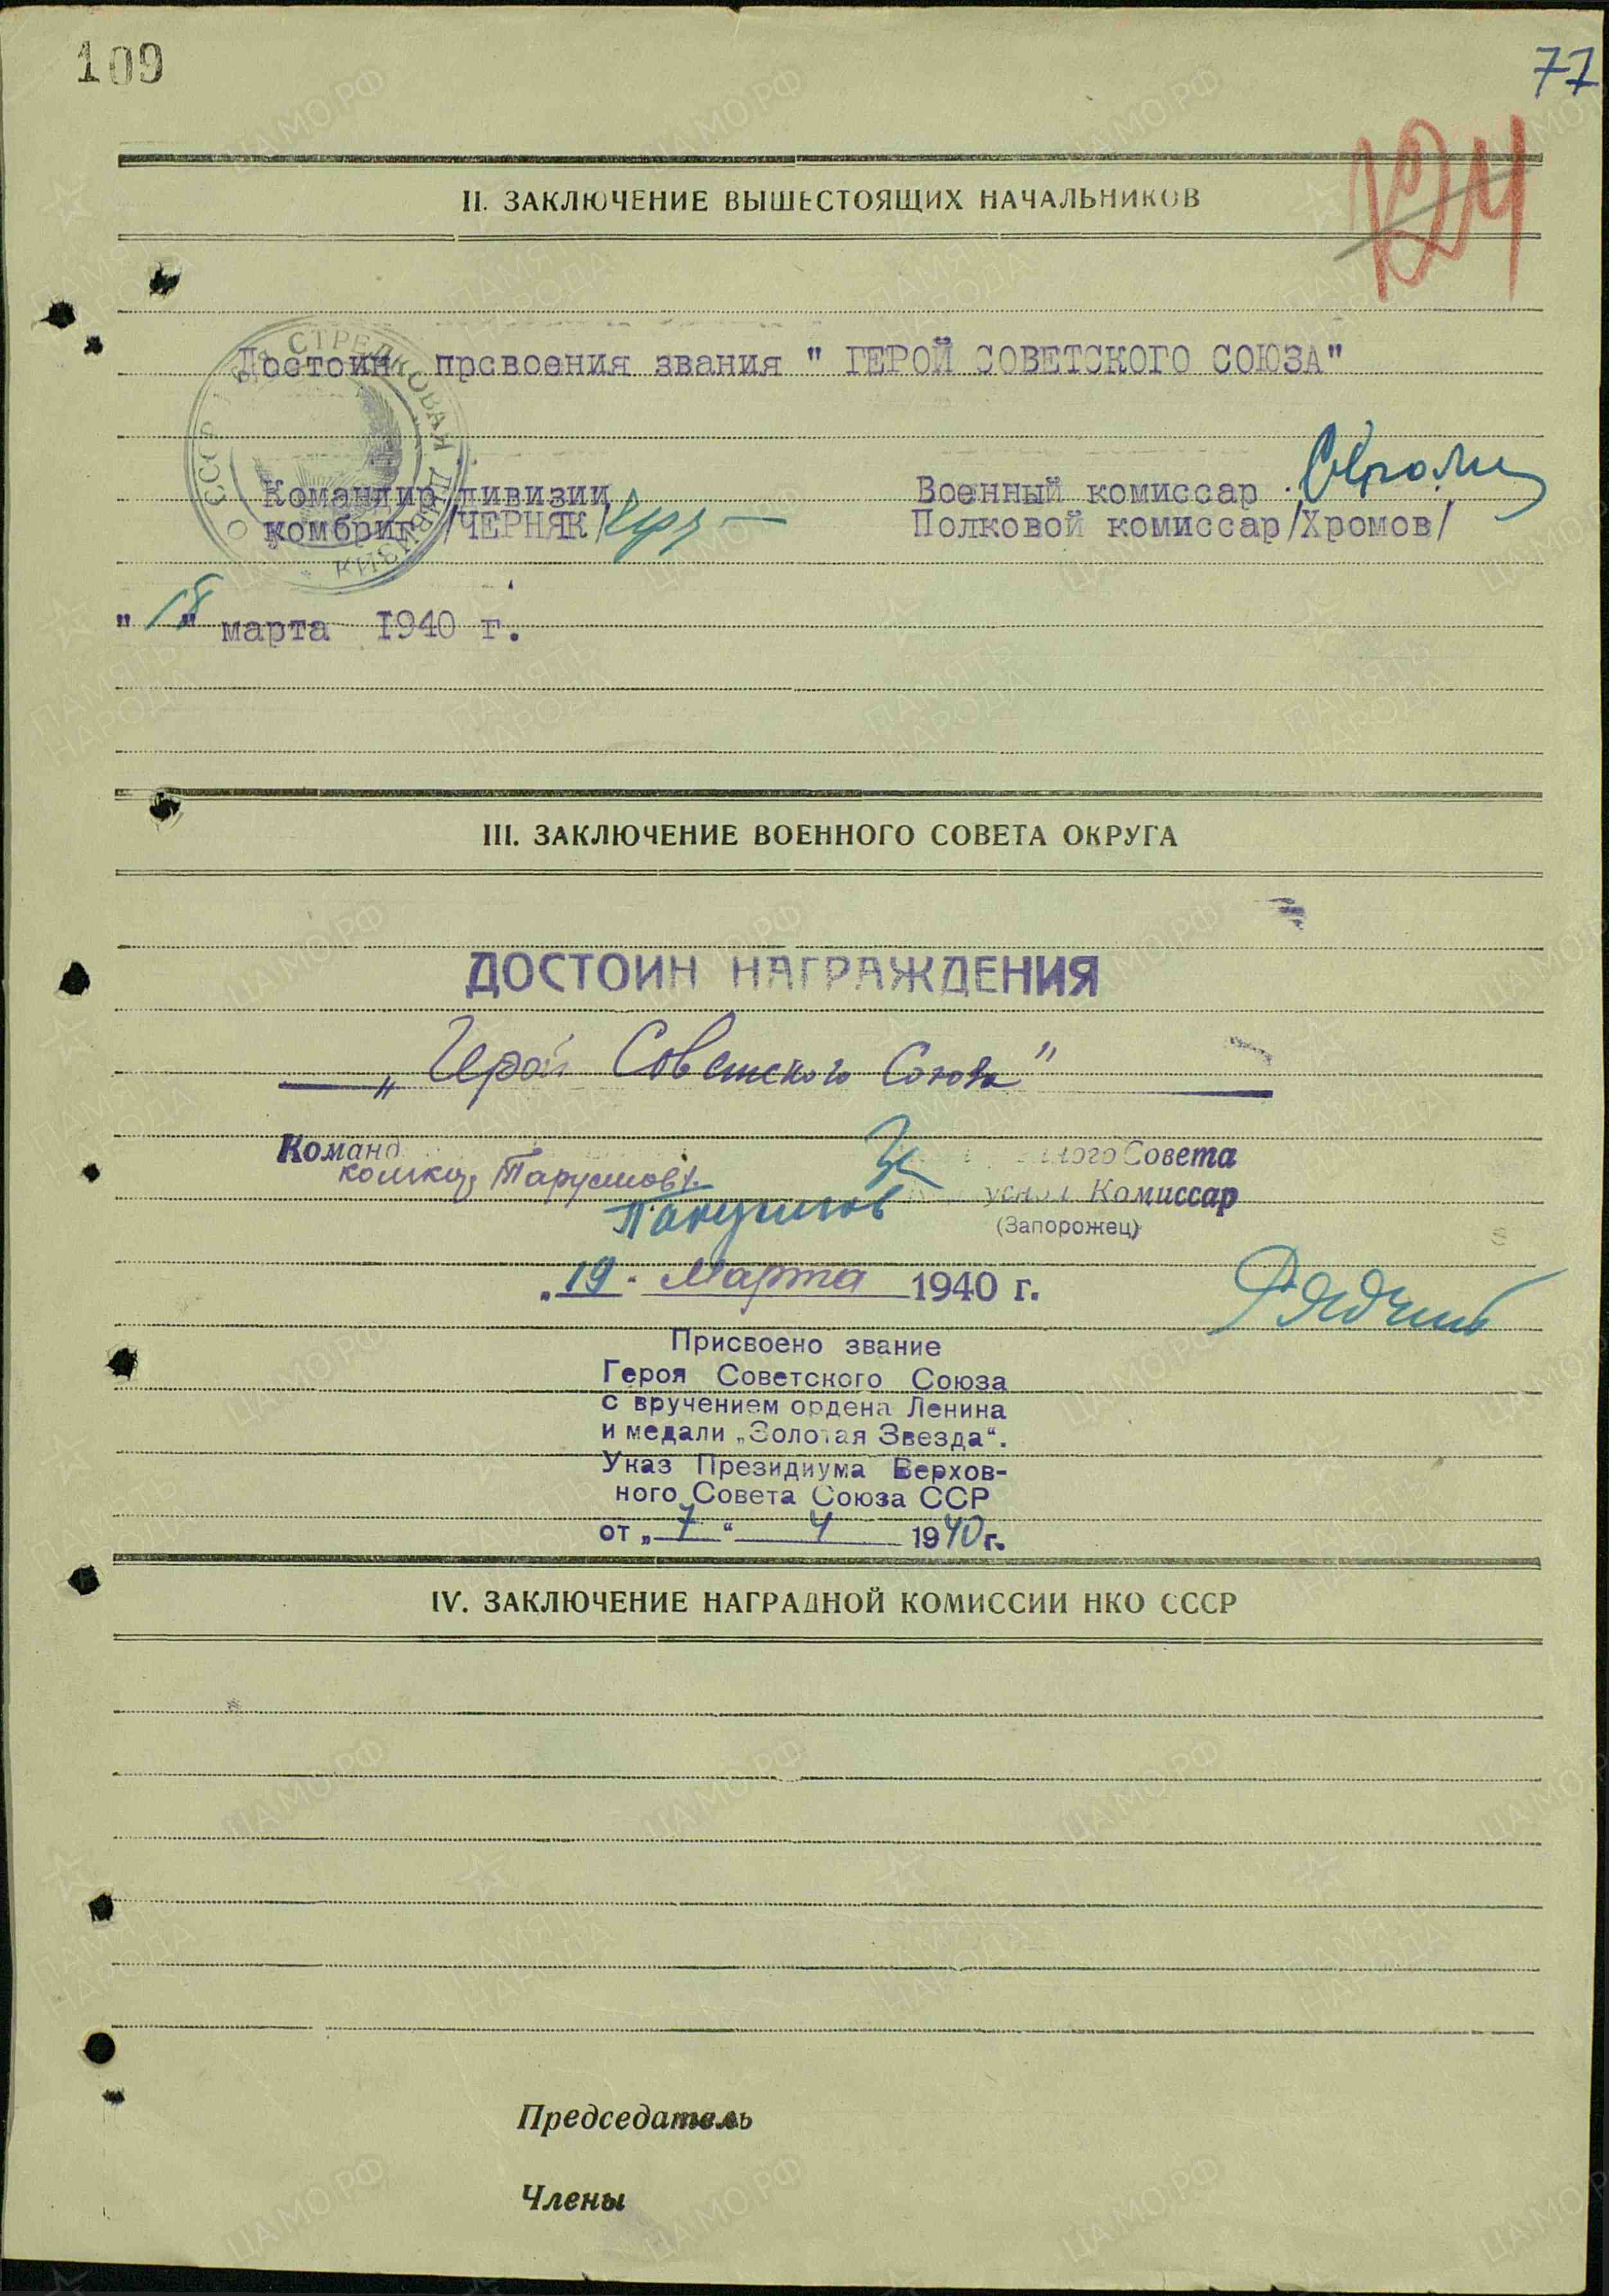 109
77
124
II. ЗАКЛЮЧЕНИЕ ВЫШЕСТОЯЩИХ НАЧАЛЬНИКОВ
Достоин прсвоения звания " ГЕРОЙ СОВЕТСКОГО СОЮЗА"
СТРЕЛКОВАЯ ДИВИЗИЯ
СССР
Командир дивизии
комбриг /ЧЕРНЯК/
Военный комиссар
Полковой комиссар/Хромов/
" 18 " марта 1940 г.
III. ЗАКЛЮЧЕНИЕ ВОЕННОГО СОВЕТА ОКРУГА
ДОСТОИН НАГРАЖДЕНИЯ
„ Герой Советского Союза"
Команд
Совета
Комиссар
(Запорожец)
19. Марта 1940 г.
Присвоено звание
Героя Советского Союза
с вручением ордена Ленина
и медали „Золотая Звезда“.
Указ Президиума Верхов-
ного Совета Союза ССР
от „ 7 “ 4 1940 г.
IV. ЗАКЛЮЧЕНИЕ НАГРАДНОЙ КОМИССИИ НКО СССР
Председатель
Члены
ЦАМО.РФ
ПАМЯТЬ
НАРОДА